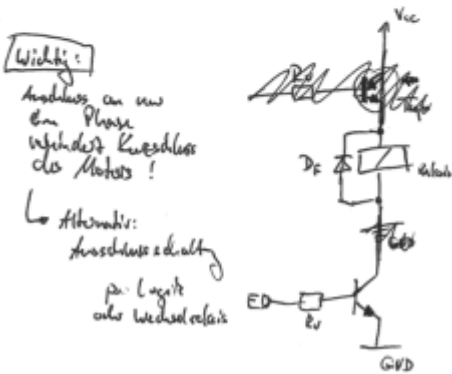 Wichtig:
Anschluss an nur
eine Phase
verhindert Kurzschluss
des Motors!
Alternativ:
Ausschlussschaltung
per Logik
oder Wechselrelais
Vcc
DF
Relais
ED
Rv
GND